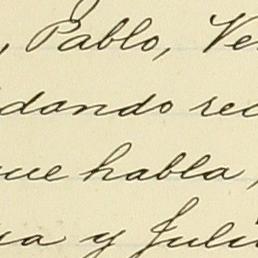 , Pablo, Ve
dando rec
ue habla,
ua y Juli